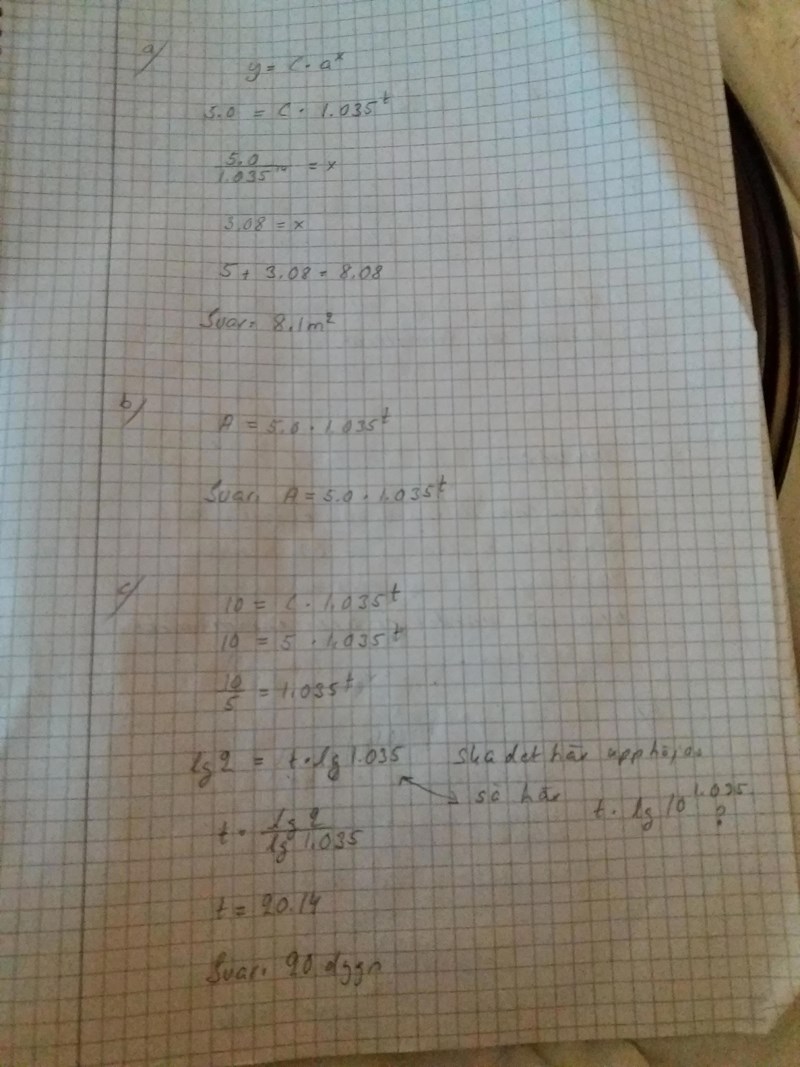 a)
y = C · a^x
5.0 = C · 1.035^t
5.0 / 1.035 = x
3.08 = x
5 + 3.08 = 8.08
Svar: 8.1m²
b)
A = 5.0 · 1.035^t
Svar: A = 5.0 · 1.035^t
c)
10 = C · 1.035^t
10 = 5 · 1.035^t
10/5 = 1.035^t
lg 2 = t · lg 1.035 Ska det här upphöjas
så här t · lg 10^1.035 ?
t = lg 2 / lg 1.035
t = 20.14
Svar: 20 dygn